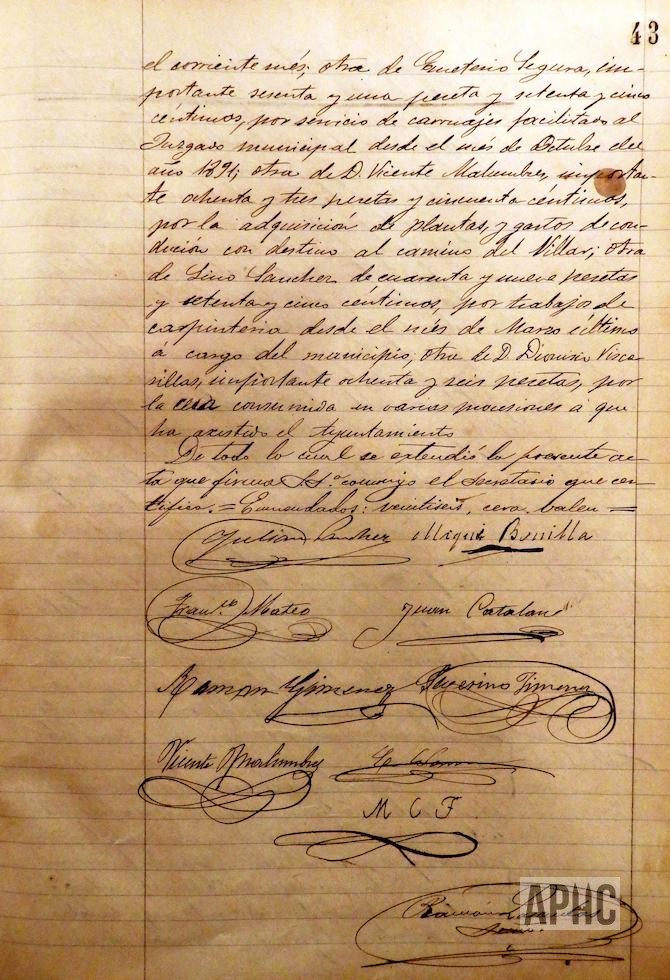 43
el corriente més; otra de Emeterio Segura, im-
portante sesenta y una peseta y setenta y cinco
céntimos, por servicio de carruajes facilitado al
Juzgado municipal desde el més de Octubre del
año 1891; otra de D. Vicente Malumbres, importan-
te ochenta y tres pesetas y cincuenta céntimos,
por la adquisición de plantas, y gastos de con-
dución con destino al camino del Villar; otra
de Lino Sanchez de cuarenta y nueve pesetas
y setenta y cinco céntimos, por trabajos de
carpinteria desde el més de Marzo último
á cargo del municipio; otra de D. Dionisio Visca-
sillas, importante ochenta y seis pesetas, por
la cera consumida en varias procesiones á que
ha asistido el Ayuntamiento
De todo lo cual se extendió la presente ac-
ta que firma S.Sª conmigo el secretario que cer-
tifico. = Enmendados: veintiseis, cera, valen =
Julian Sanchez Miguel Bonilla
Franco Mateo Juan Catalan
Ramon Gimenez Severino Jimenez
Vicente Malumbres
M C F
Ramón
APHC